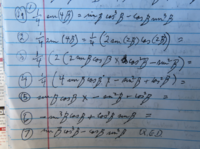 (1) 1/4 sin(4β) = sinβ cos³β - cosβ sin³β
(2) 1/4 sin(4β) = 1/4 (2 sin(2β) cos(2β))
(3) 1/4 (2 (2 sinβ cosβ × cos²β - sin²β)
(4) 1/4 (4 sinβ cosβ × - sin²β + cos²β) =
(5) sinβ cosβ × - sin²β + cos²β =
(6)
(7) sinβ cos³β - cosβ sin³β (Q.E.D)